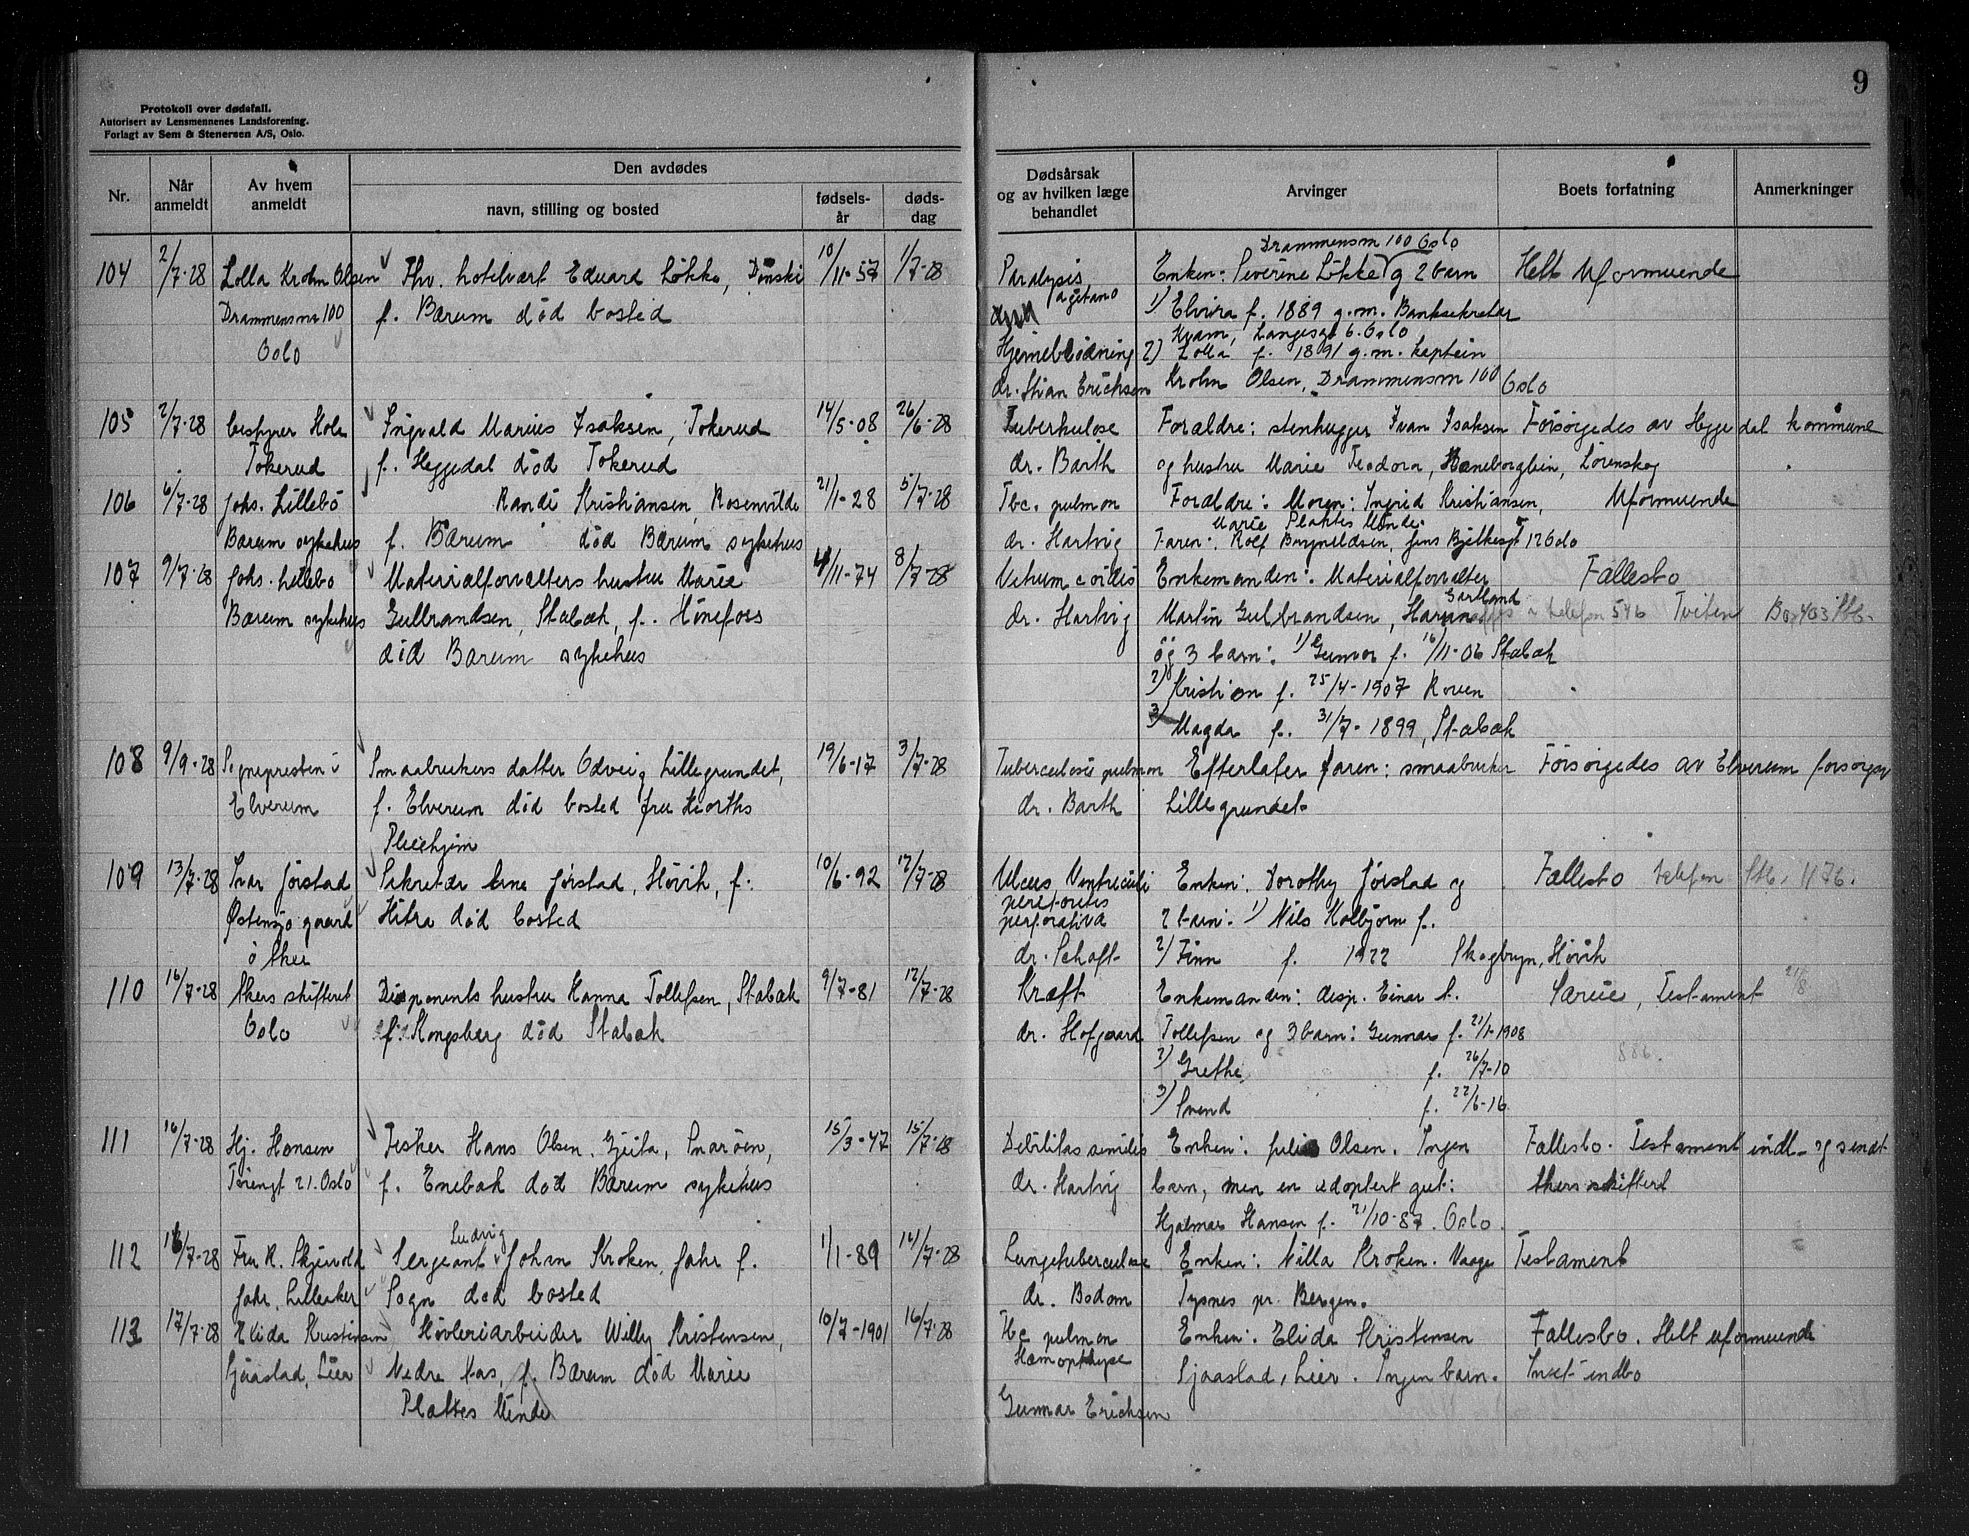 Protokoll over dødsfall.
Autorisert av Lensmennenes Landsforening.
Forlagt av Sem & Stenersen A/S, Oslo.
9
Nr. Når anmeldt Av hvem anmeldt Den avdødes navn, stilling og bosted fødselsår dødsdag Dødsårsak og av hvilken læge behandlet Arvinger Boets forfatning Anmerkninger
Drammensvn 100 Oslo
104 2/7-28 Lolla Krohn Olsen Fhv. hotelvært Edvard Løkke, 10/11-57 1/7-28 Paralysis Enken: Severine Løkke og 2 barn Helt Uformuende
agitans
Drammensvn 100 f. Bærum død bosted 1) Elvira f. 1889 g.m. Banksekretær
Oslo Kvam, Langesgt 6. Oslo
Hjerneblødning 2) Lolla f. 1891 g.m. kaptein
dr. Stian Erichsen Krohn Olsen, Drammensvn 100 Oslo
105 2/7-28 bestyrer Hole Ingvald Marius Isaksen, Tokerud 14/5-08 26/6-28 Tuberkulose Forældre: stenhugger Ivan Isaksen Forsørgedes av Heggedal kommune
Tokerud f. Heggedal død Tokerud dr. Barth og hustru Marie Teodora, Haneborgveien, Lørenskog
106 6/7-28 Johs. Lillebø Randi Kristiansen, Rosenvilde 21/1-28 5/7-28 Tbc. pulmon Forældre: Moren: Ingrid Kristiansen, Uformuende
Marie Plahtes Minde.
Bærum sykehus f. Bærum død Bærum sykehus dr. Hartvig Faren: Rolf Bryneldsen, Jens Bjelkesgt 12 Oslo
107 9/7-28 Johs. Lillebø Materialforvalters hustru Marie 4/11-74 8/7-28 Vitium cordis Enkemanden: Materialforvalter Fællesbo
Bærum sykehus Gulbrandsen, Stabæk, f. Hønefoss dr. Hartvig Martin Gulbrandsen, telefon 546 Tveten Box 403 Stb.
død Bærum sykehus og 3 barn: 1) Gunvor f. 16/11-06 Stabæk
2) Kristian f. 25/4-1907 Roven
3) Magda f. 31/7-1899, Stabæk
108 9/9-28 Sognepresten i Smaabrukers datter Odveig Lillegrundet, 19/6-17 3/7-28 Tuberculosis pulmon Efterlater faren: smaabruker Forsørgedes av Elverum forsorgsv
Elverum f. Elverum død bosted fru Hiorths dr. Barth Lillegrundet
Pleiehjem
109 13/7-28 Ivar Jørstad Sekretær Arne Jørstad, Høvik, f. 10/6-92 12/7-28 Ulcus Ventriculi Enken: Dorothy Jørstad og Fællesbo telefon Stb. 1176.
Østensjø gaard Hitra død bosted perforativa 2 barn: 1) Nils Kolbjørn f.
i Aker dr. Schaft 2) Finn f. 1922 Skogbryn, Høvik
110 16/7-28 Akers skifteret Disponents hustru Hanna Tollefsen, Stabæk 9/7-81 12/7-28 Kræft Enkemanden: disp. Einar A. Særeie, Testament 21/8
Oslo f. Kongsberg død Stabæk dr. Hofgaard Tollefsen og 3 barn: Gunnar f. 21/1-1908
886.
2) Grethe, f. 26/7-10
3) Svend f. 22/6-16
111 16/7-28 Hj. Hansen Fisker Hans Olsen, Gjeita, Snarøen, 15/3-47 15/7-28 Debilitas senilis Enken: Julie Olsen. Ingen Fællesbo. Testament indl. og sendt
Tøiengt 21. Oslo f. Enebak død Bærum sykehus dr. Hartvig barn, men en adoptert gut: Akers skifteret
Hjalmar Hansen f. 21/10-87. Oslo.
Ludvig
112 16/7-28 Fru R. Skjervold Sergeant Johan Kroken, Jahr f. 1/1-89 14/7-28 Lungetuberculose Enken: Nilla Kroken. Vaage Testament
Jahr, Lilleaker Sogn død bosted dr. Bodom Tysnes pr. Bergen.
113 17/7-28 Elida Kristensen Høvleriarbeider Willy Kristensen, 10/7-1901 16/7-28 Tbc pulmon Enken: Elida Kristensen Fællesbo. Helt uformuende
Hæmoptyse
Gjaastad, Lier Nedre Aas, f. Bærum død Marie Sjaastad, Lier. Ingen barn. Intet indbo
Plahtes Minde Gunnar Erichsen